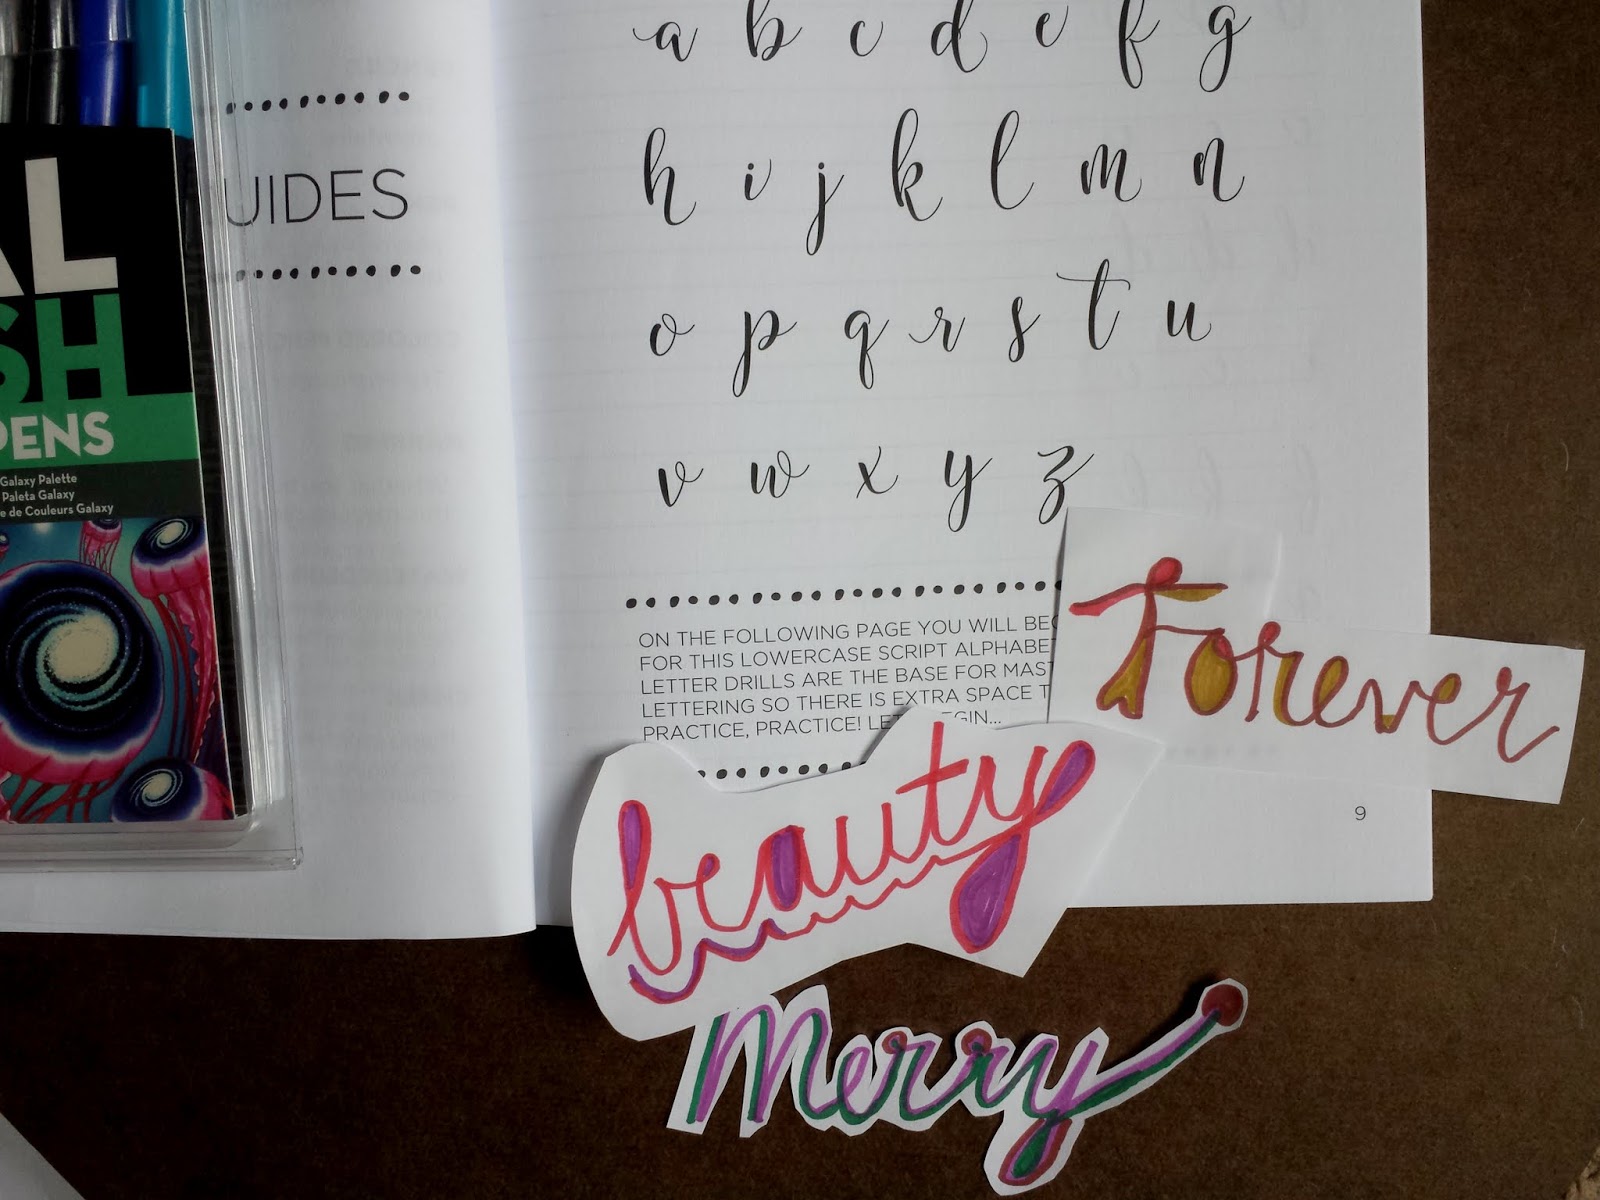 UIDES
AL
SH
PENS
Galaxy Palette
Paleta Galaxy
e de Couleurs Galaxy
a b c d e f g
h i j k l m n
o p q r s t u
v w x y z
ON THE FOLLOWING PAGE YOU WILL BEG
FOR THIS LOWERCASE SCRIPT ALPHABE
LETTER DRILLS ARE THE BASE FOR MAST
LETTERING SO THERE IS EXTRA SPACE T
PRACTICE, PRACTICE! LET EGIN...
9
Forever
beauty
Merry